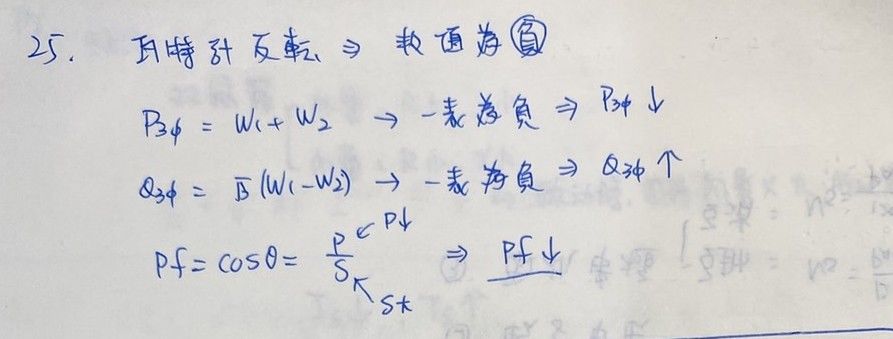 25. 瓦特計反転 ⇒ 數值為負
P3φ = W1 + W2 → 一表為負 ⇒ P3φ ↓
Q3φ = √3 (W1 - W2) → 一表為負 ⇒ Q3φ ↑
Pf = cosθ = P/S ← P↓ ⇒ Pf ↓
↖ S大